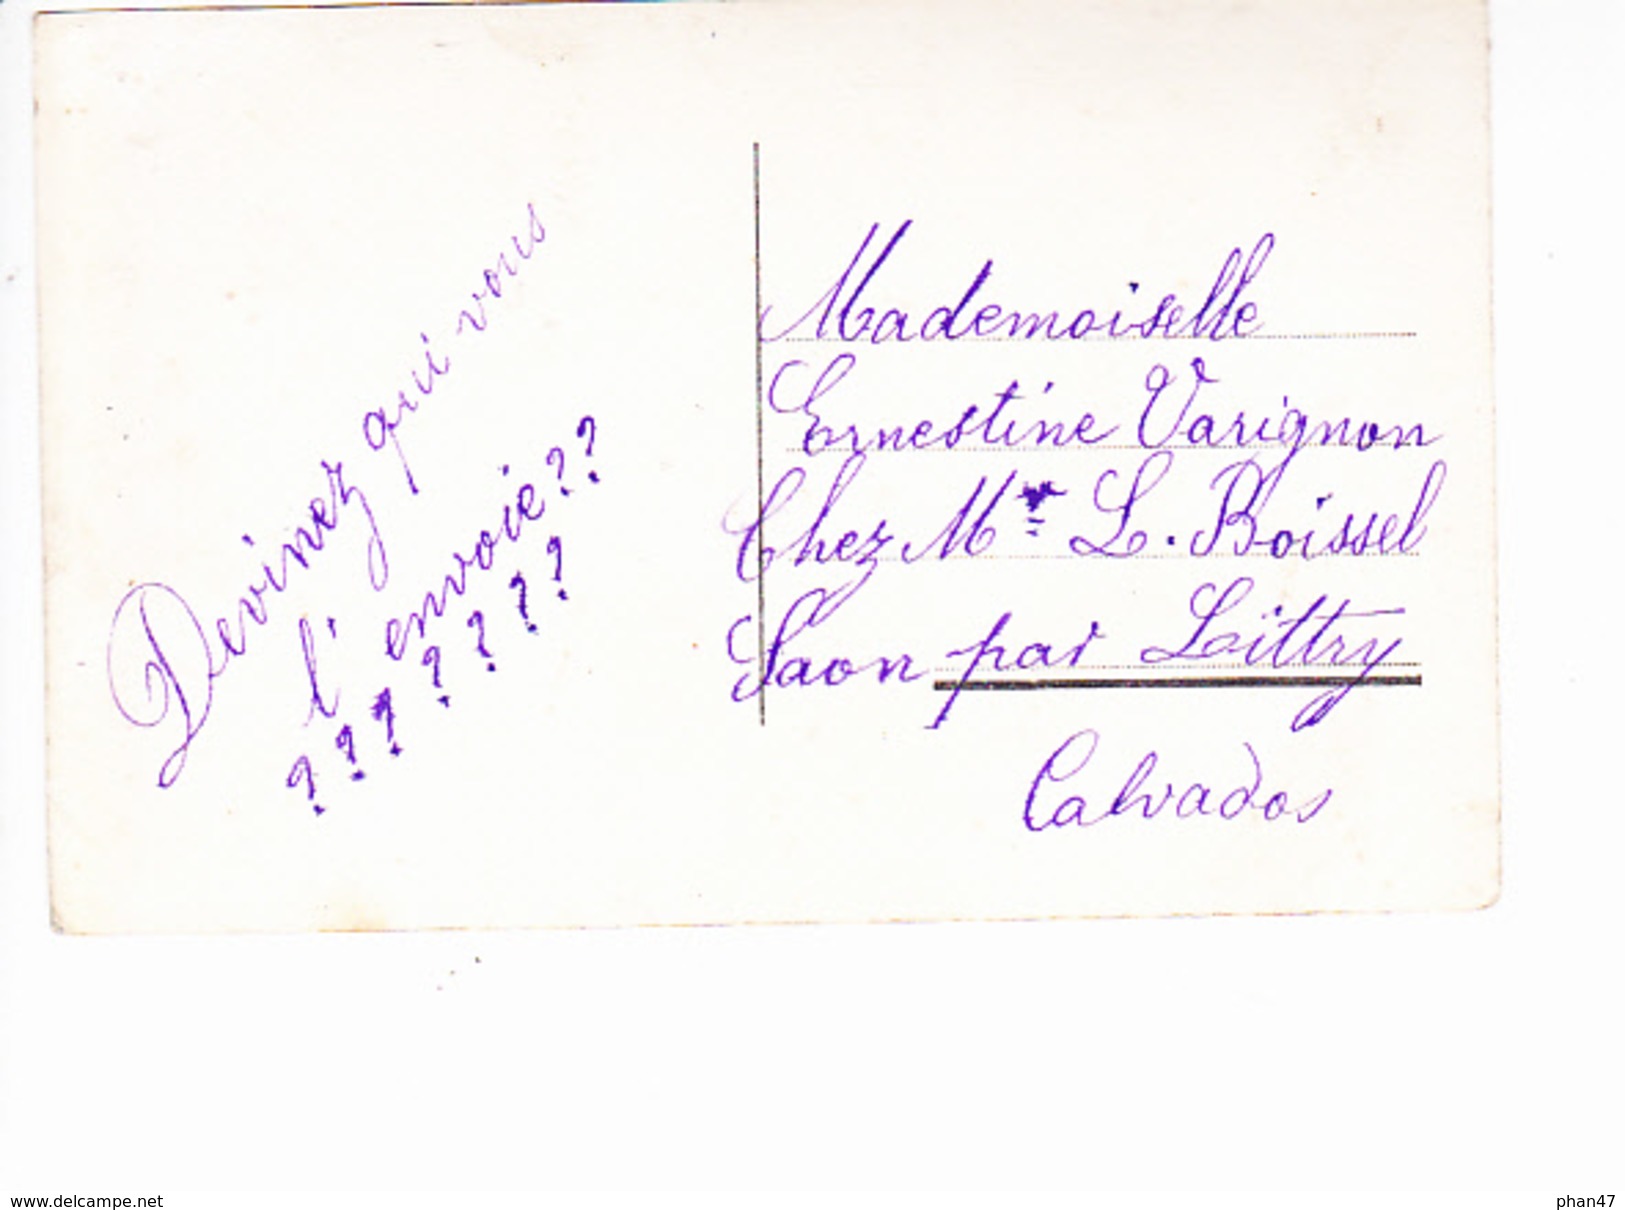 Devinez qui vous
l'envoie??
????????
Mademoiselle
Ernestine Varignon
Chez Mr L. Boissel
Saon par Littry
Calvados
www.delcampe.net
phan47